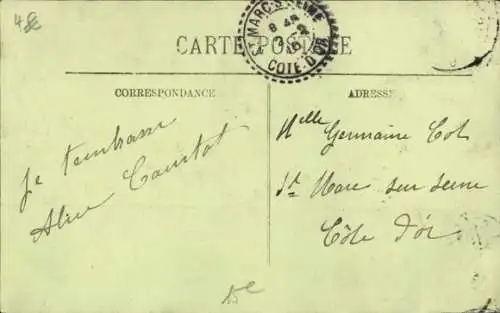 48c
CARTE POSTALE
ST MARC-S-SEINE
8
COTE D'OR
CORRESPONDANCE
ADRESSE
Je t'embrasse
Aline
Melle Germaine Col
St Marc sur Seine
Côte d'Or
15c